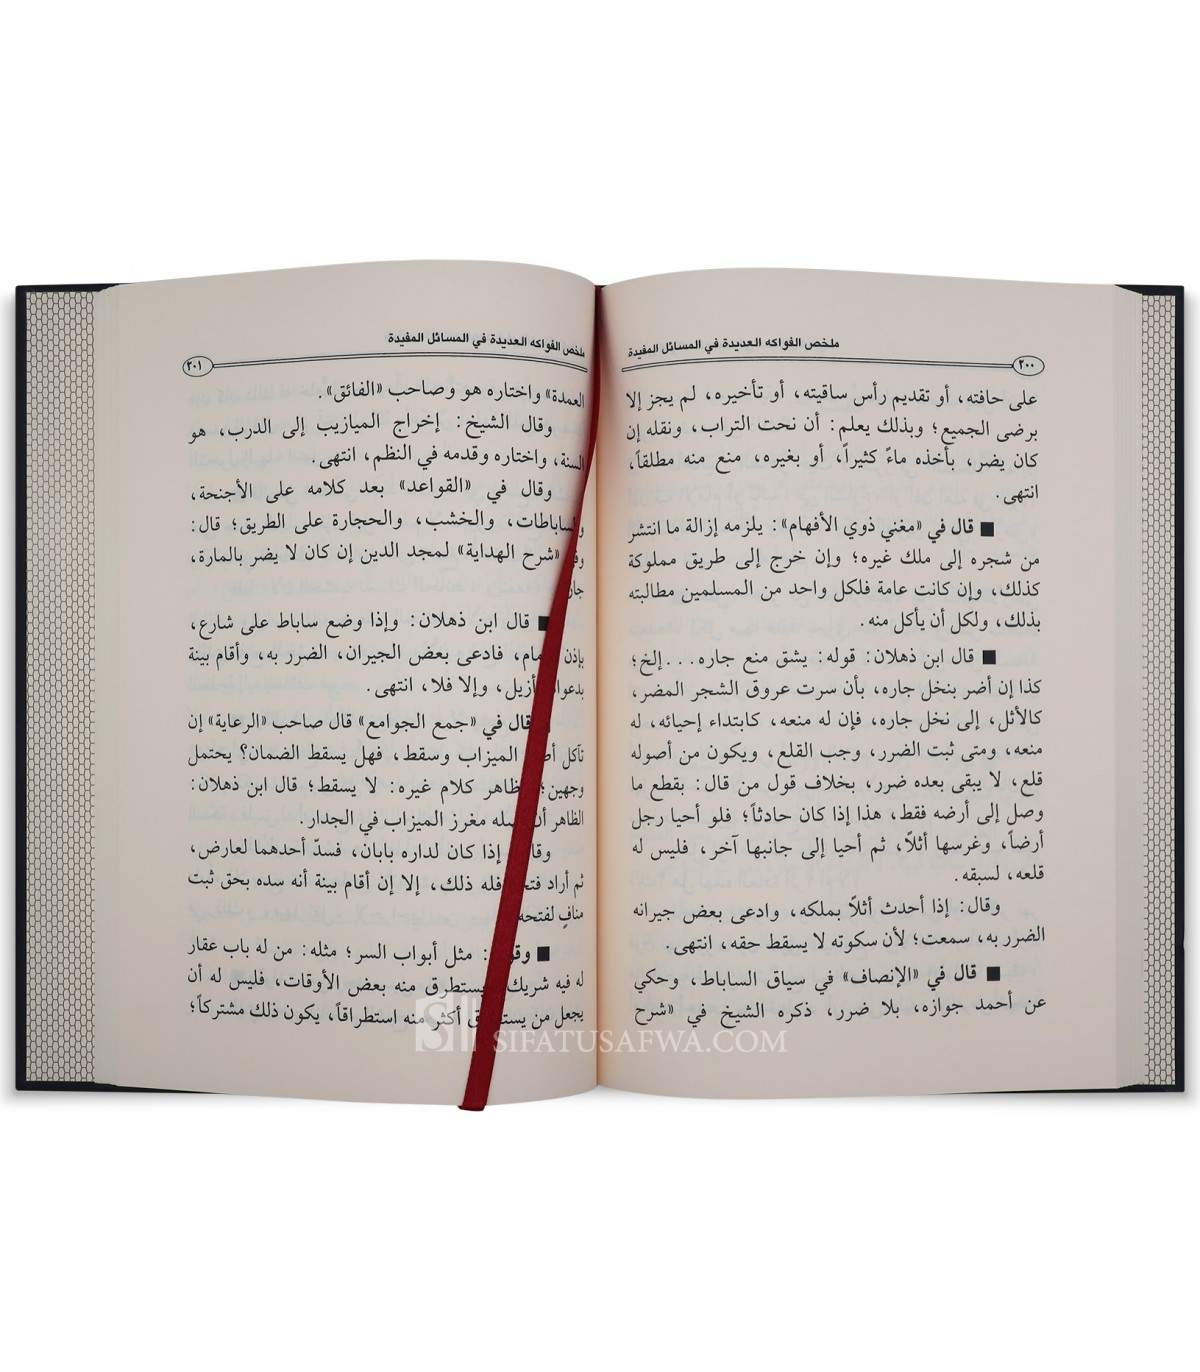 ملخص الفواكه العديدة في المسائل المفيدة
٢٠٠
على حافته، أو تقديم رأس ساقيته، أو تأخيره، لم يجز إلا
برضى الجميع؛ وبذلك يعلم: أن نحت التراب، ونقله إن
كان يضر، بأخذه ماءً كثيراً، أو بغيره، منع منه مطلقاً،
انتهى.
■ قال في «مغني ذوي الأفهام»: يلزمه إزالة ما انتشر
من شجره إلى ملك غيره؛ وإن خرج إلى طريق مملوكة
كذلك، وإن كانت عامة فلكل واحد من المسلمين مطالبته
بذلك، ولكل أن يأكل منه.
■ قال ابن ذهلان: قوله: يشق منع جاره... إلخ؛
كذا إن أضر بنخل جاره، بأن سرت عروق الشجر المضر،
كالأثل، إلى نخل جاره، فإن له منعه، كابتداء إحيائه، له
منعه، ومتى ثبت الضرر، وجب القلع، ويكون من أصوله
قلع، لا يبقى بعده ضرر، بخلاف قول من قال: بقطع ما
وصل إلى أرضه فقط، هذا إذا كان حادثاً؛ فلو أحيا رجل
أرضاً، وغرسها أثلاً، ثم أحيا إلى جانبها آخر، فليس له
قلعه، لسبقه.
وقال: إذا أحدث أثلاً بملكه، وادعى بعض جيرانه
الضرر به، سمعت؛ لأن سكوته لا يسقط حقه، انتهى.
■ قال في «الإنصاف» في سياق الساباط، وحكي
عن أحمد جوازه، بلا ضرر، ذكره الشيخ في «شرح
ملخص الفواكه العديدة في المسائل المفيدة
٢٠١
العمدة» واختاره هو وصاحب «الفائق».
وقال الشيخ: إخراج الميازيب إلى الدرب، هو
السنة، واختاره وقدمه في النظم، انتهى.
وقال في «القواعد» بعد كلامه على الأجنحة،
والساباطات، والخشب، والحجارة على الطريق؛ قال:
«شرح الهداية» لمجد الدين إن كان لا يضر بالمارة،
■ قال ابن ذهلان: وإذا وضع ساباط على شارع،
بإذن فادعى بعض الجيران، الضرر به، وأقام بينة
أزيل، وإلا فلا، انتهى.
قال في «جمع الجوامع» قال صاحب «الرعاية» إن
تآكل الميزاب وسقط، فهل يسقط الضمان؟ يحتمل
وجهين؛ ظاهر كلام غيره: لا يسقط؛ قال ابن ذهلان:
الظاهر أن مغرز الميزاب في الجدار.
إذا كان لداره بابان، فسدّ أحدهما لعارض،
ثم أراد فله ذلك، إلا إن أقام بينة أنه سده بحق ثبت
منافٍ لفتحه
■ مثل أبواب السر؛ مثله: من له باب عقار
له فيه شريك يستطرق منه بعض الأوقات، فليس له أن
يجعل من أكثر منه استطراقاً، يكون ذلك مشتركاً؛
SIFATUSAFWA.COM